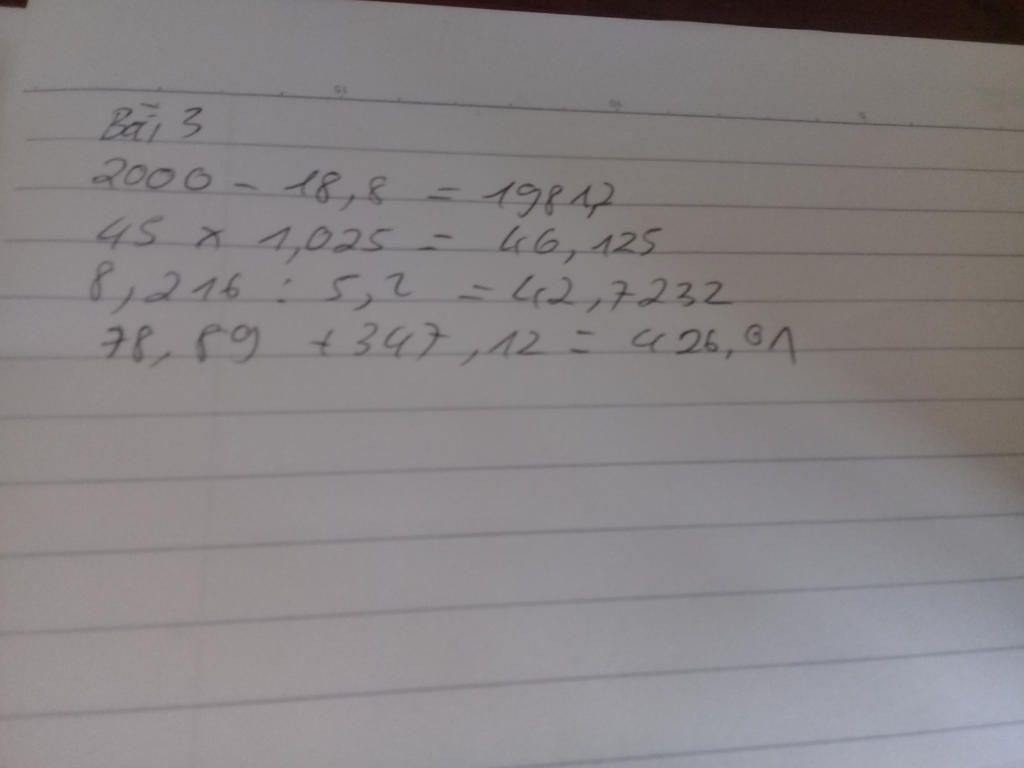 Bài 3
2000 - 18,8 = 1981,2
45 x 1,025 = 46,125
8,216 : 5,2 = 42,7232
78,89 + 347,12 = 426,01